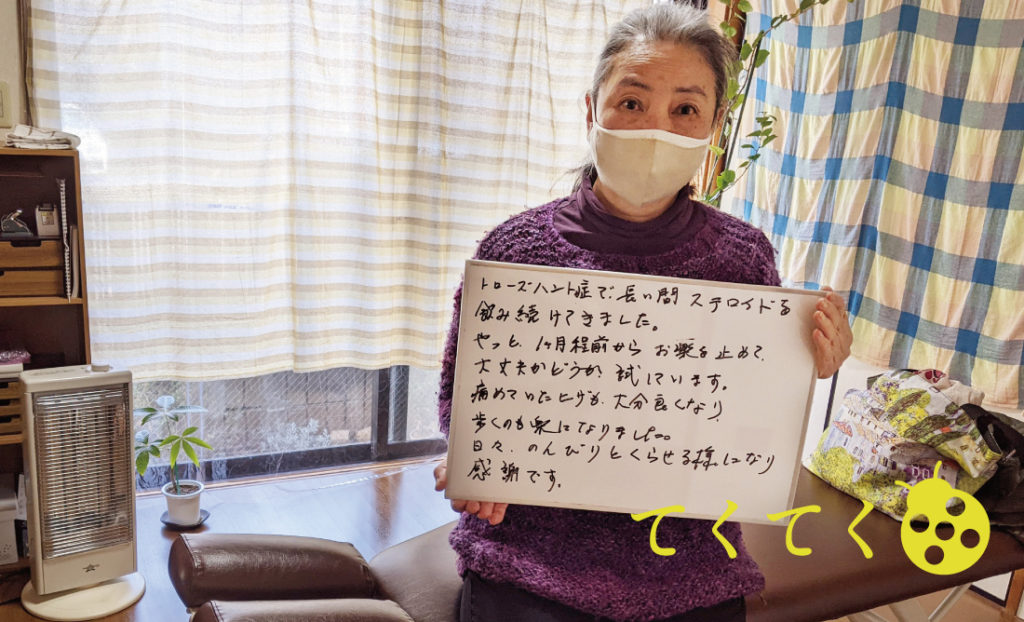 トローズハント症で、長い間 ステロイドを
飲み続けてきました。
やっと、1ヶ月程前から お薬を止めて、
大丈夫かどうか、試しています。
痛めていたヒザも、大分良くなり、
歩くのも楽になりました。
日々、のんびりとくらせる様になり
感謝です。
てくてく